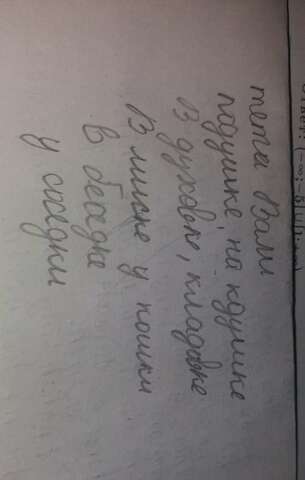 тета Вали
подушке, на кдушке
В духовке, кладовке
В миске у кошки
в беседке
у соседки